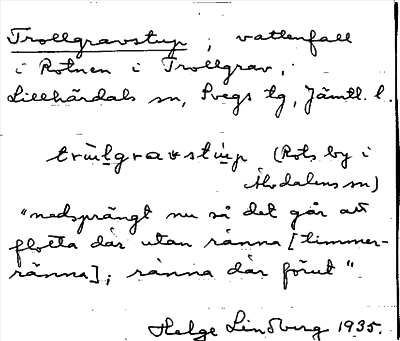 Trollgravstup ; vattenfall
i Rotnen i Trollgrav,
Lillhärdals sn, Svegs tg, Jämtl. l.
trùlgravstùp (Rots by i
Älvdalens sn)
"nedsprängt nu så det går att
flotta där utan ränna [timmer-
ränna]; ränna där förut"
Helge Lindberg 1935.